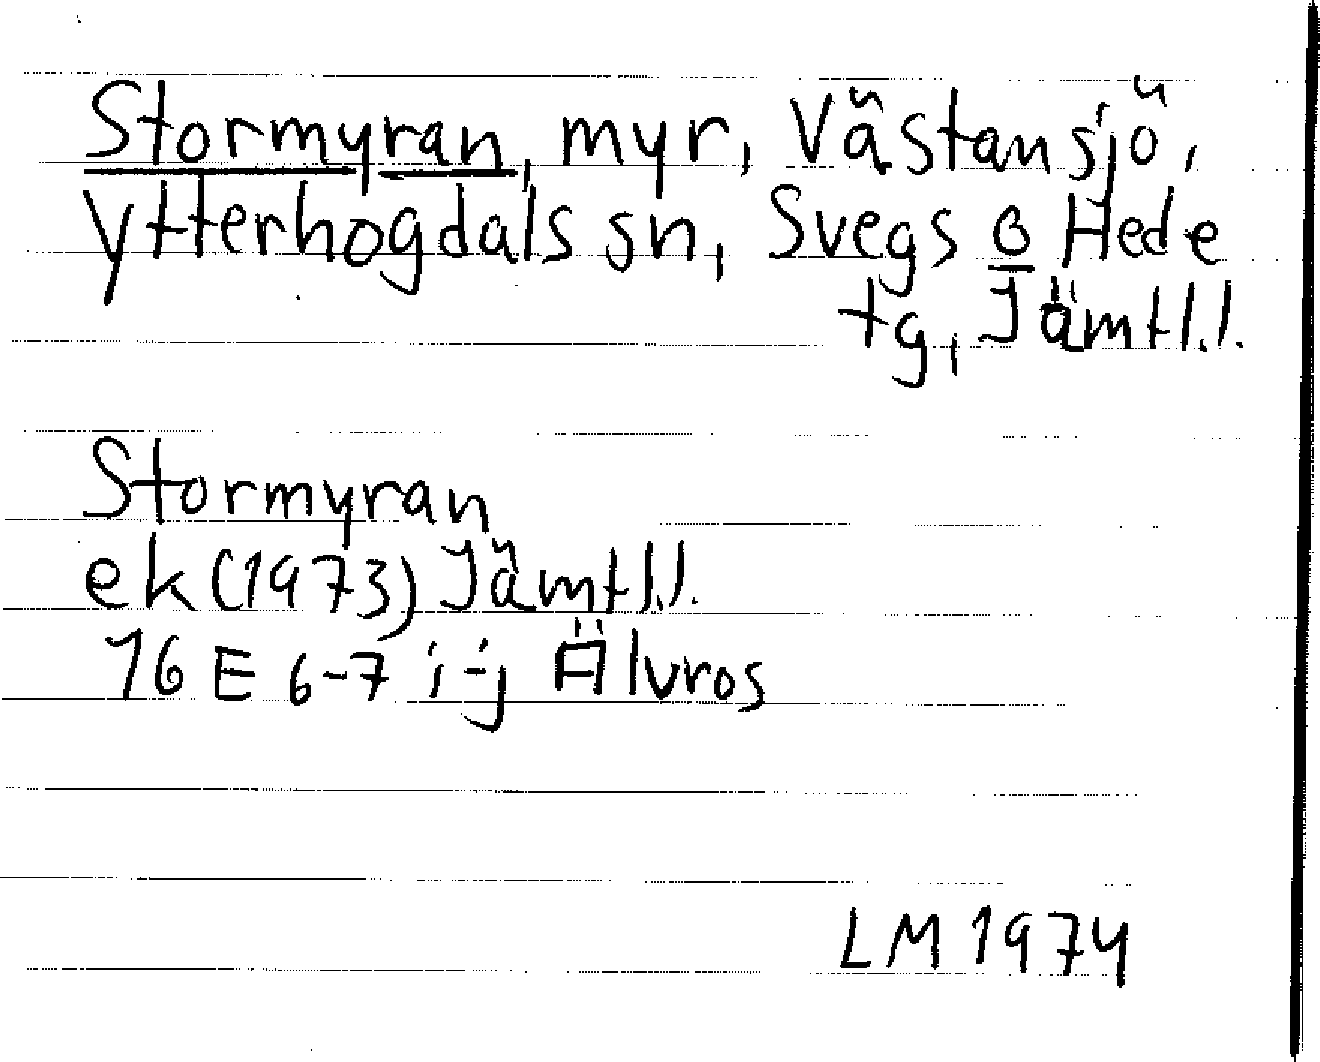 Stormyran, myr, Västansjö,
Ytterhogdals sn, Svegs o Hede
tg, Jämtl.l.
Stormyran
ek (1973) Jämtl.l.
16 E 6-7 i-j Älvros
LM 1974